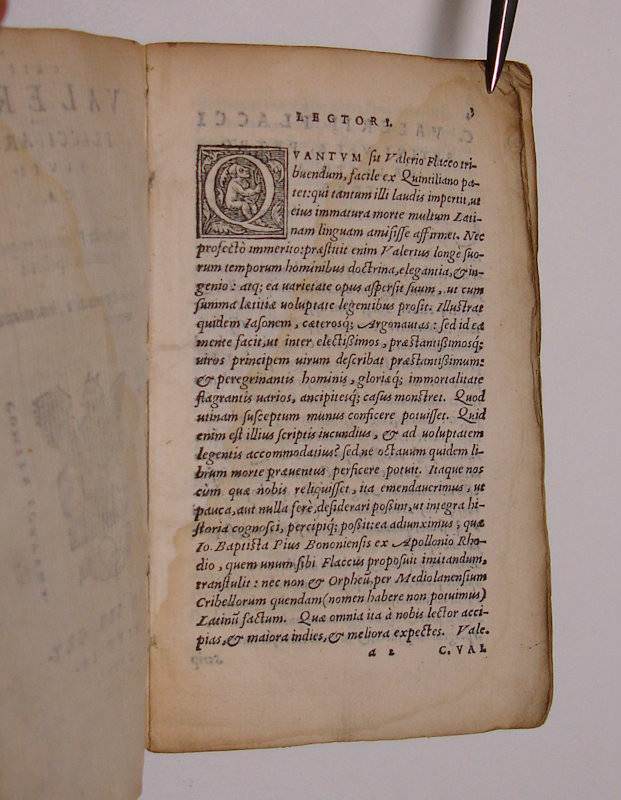 LECTORI.
3
QVANTVM sit Valerio Flacco tri-
buendum, facile ex Quintiliano pa-
tet: qui tantum illi laudis impertit, ut
eius immatura morte multum Lati-
nam linguam amisisse affirmet. Nec
profectò immerito: præstitit enim Valerius longè suo-
rum temporum hominibus doctrina, elegantia, & in-
genio: atq; ea varietate opus aspersit suum, ut cum
summa lætitiæ voluptate legentibus prosit. Illustrat
quidem Iasonem, cæterosq; Argonautas: sed id ea
mente facit, ut inter electißimos, præstantißimosq;
uiros principem uirum describat præstantißimum:
& peregrinantis hominis, gloriæq; immortalitate
flagrantis uarios, ancipitesq; casus monstret. Quod
utinam susceptum munus conficere potuisset. Quid
enim est illius scriptis iucundius, & ad voluptatem
legentis accommodatius? sed ne octauum quidem li-
brum morte præuentus perficere potuit. Itaque nos
cùm quæ nobis reliquisset, ita emendauerimus, ut
pauca, aut nulla ferè, desiderari possint, ut integra hi-
storia cognosci, percipiq; poßit: ea adiunximus, quæ
Io. Baptista Pius Bononiensis ex Apollonio Rho-
dio, quem unum sibi Flaccus proposuit imitandum,
transtulit: nec non & Orpheũ, per Mediolanensium
Cribellorum quendam (nomen habere non potuimus)
Latinũ factum. Quæ omnia ita à nobis lector acci-
pias, & maiora indies, & meliora expectes. Vale.
a 2 C. VAL